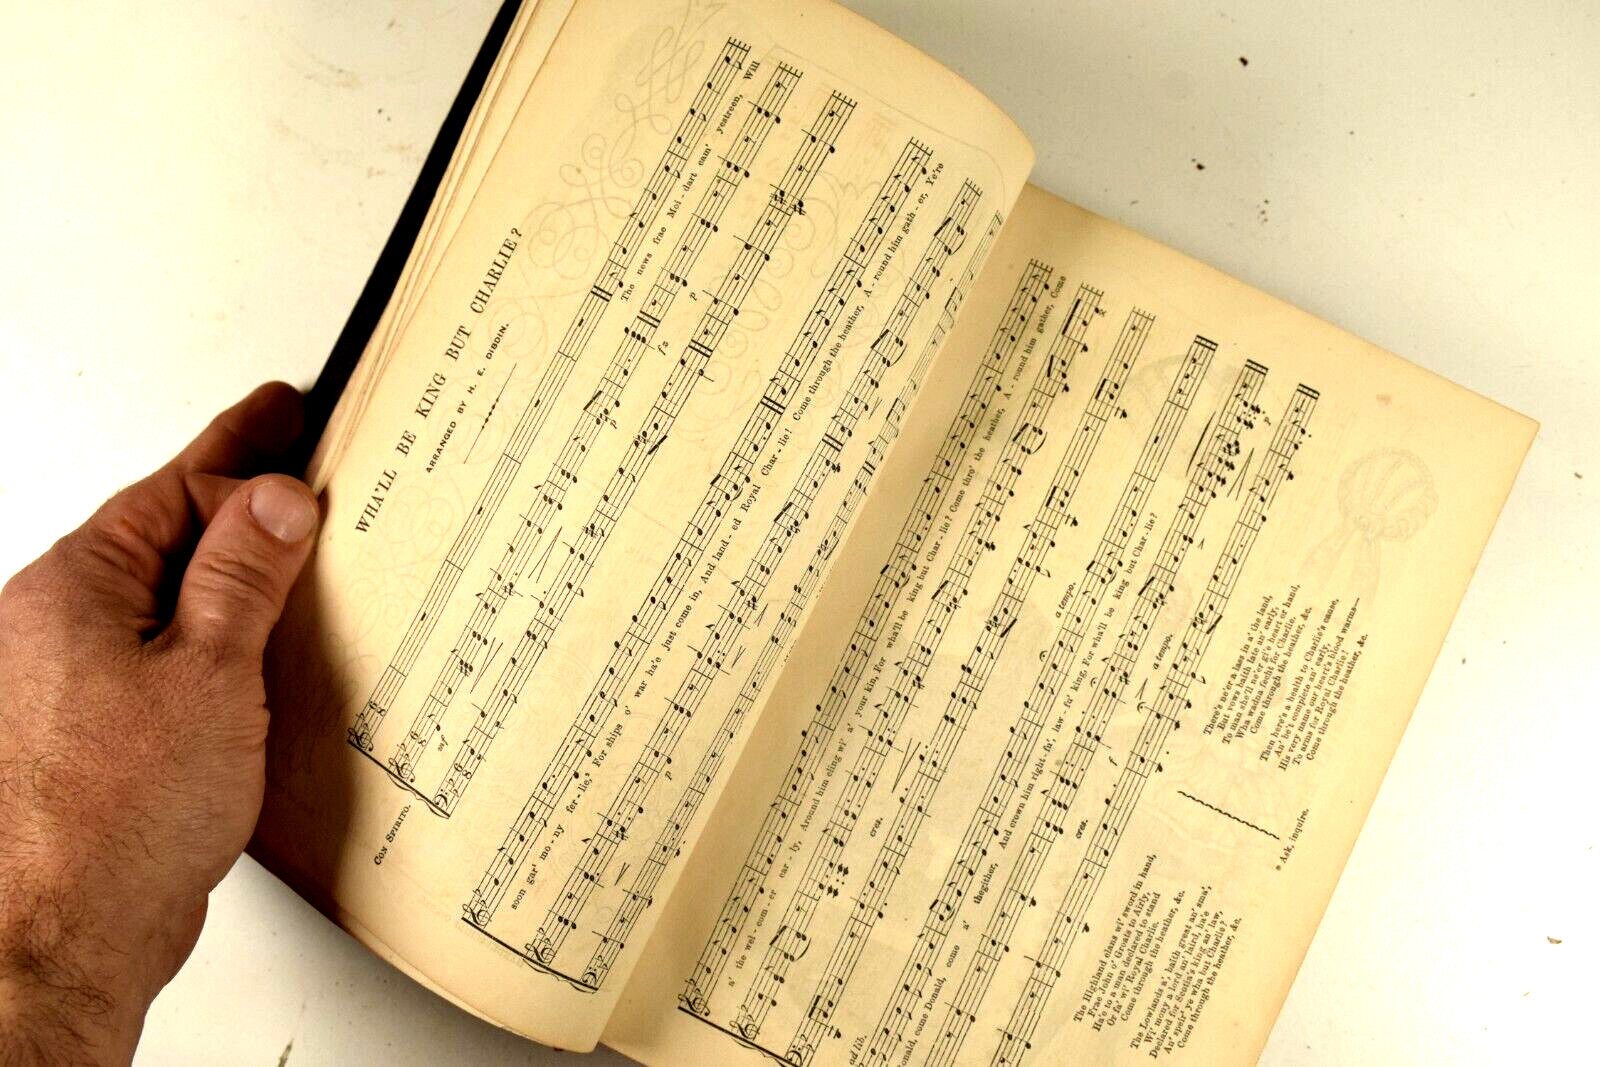 WHA'LL BE KING BUT CHARLIE?
ARRANGED BY H. E. DIBDIN.
CON SPIRITO.
The news frae Moi - dart cam' yestreen, Will
mf
p
fz
p
soon gar' mo - ny fer - lie, For ships o' war ha'e just come in, And land - ed Royal Char - lie! Come through the heather, A - round him gath - er, Ye're
p
a' the wel - com - er ear - ly, Around him cling wi' a' your kin, For wha'll be king but Char - lie? Come thro' the heather, A - round him gather, Come
cres.
ad lib.
a tempo.
Donald, come Donald, come a' thegither, And crown him right - fu', law - fu' king, For wha'll be king but Char - lie?
a tempo.
p
cres.
f
The Highland clans wi' sword in hand,
Frae John o' Groats to Airly,
Ha'e to a man declared to stand
Or fa' wi' Royal Charlie.
Come through the heather, &c.
The Lowlands a', baith great an' sma',
Wi' mony a lord an' laird, ha'e
Declared for Scotia's king an' law,
An' speir* ye wha but Charlie?
Come through the heather, &c.
There's ne'er a lass in a' the land,
But vows baith late an' early,
To man she'll ne'er gi'e heart or hand,
Wha wadna fecht for Charlie.
Come through the heather, &c.
Then here's a health to Charlie's cause,
An' be't complete an' early,
His very name our heart's blood warms—
To arms for Royal Charlie!
Come through the heather, &c.
* Ask, inquire.